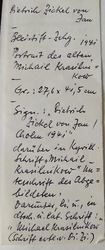 Dietrich Zickel von
Jan
Bleistift-Zchg. 1941
Portrait des alten
Michail Krasilni-
kow
Gr.: 27,6 x 41,5 cm
Sign.: „Dietrich
Zickel von Jan
Cholm 1941"
darüber in kyrill.
Schrift „Michail
Krasilnikow" Un-
terschrift des Abge-
bildeten.
Darunter
in lat. Schrift:
„Michael Krasilnikow"